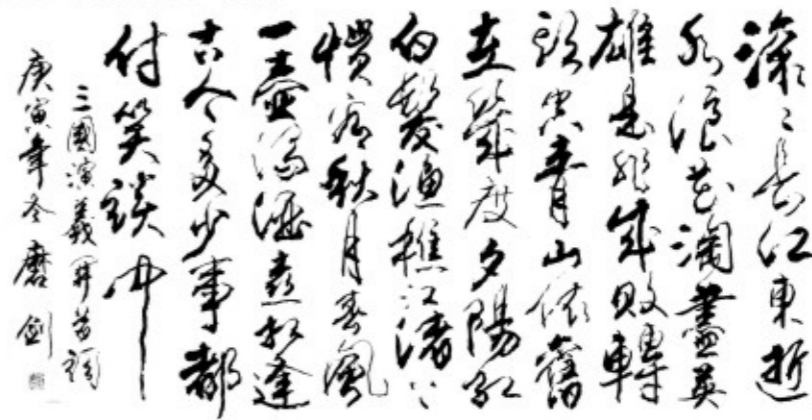 滚滚長江東逝
水浪花淘盡英
雄是非成敗轉
頭空青山依舊
在幾度夕陽紅
白髮漁樵江渚上
慣看秋月春風
一壺濁酒喜相逢
古今多少事都
付笑談中
三國演義开首詞
庚寅年冬磨劍